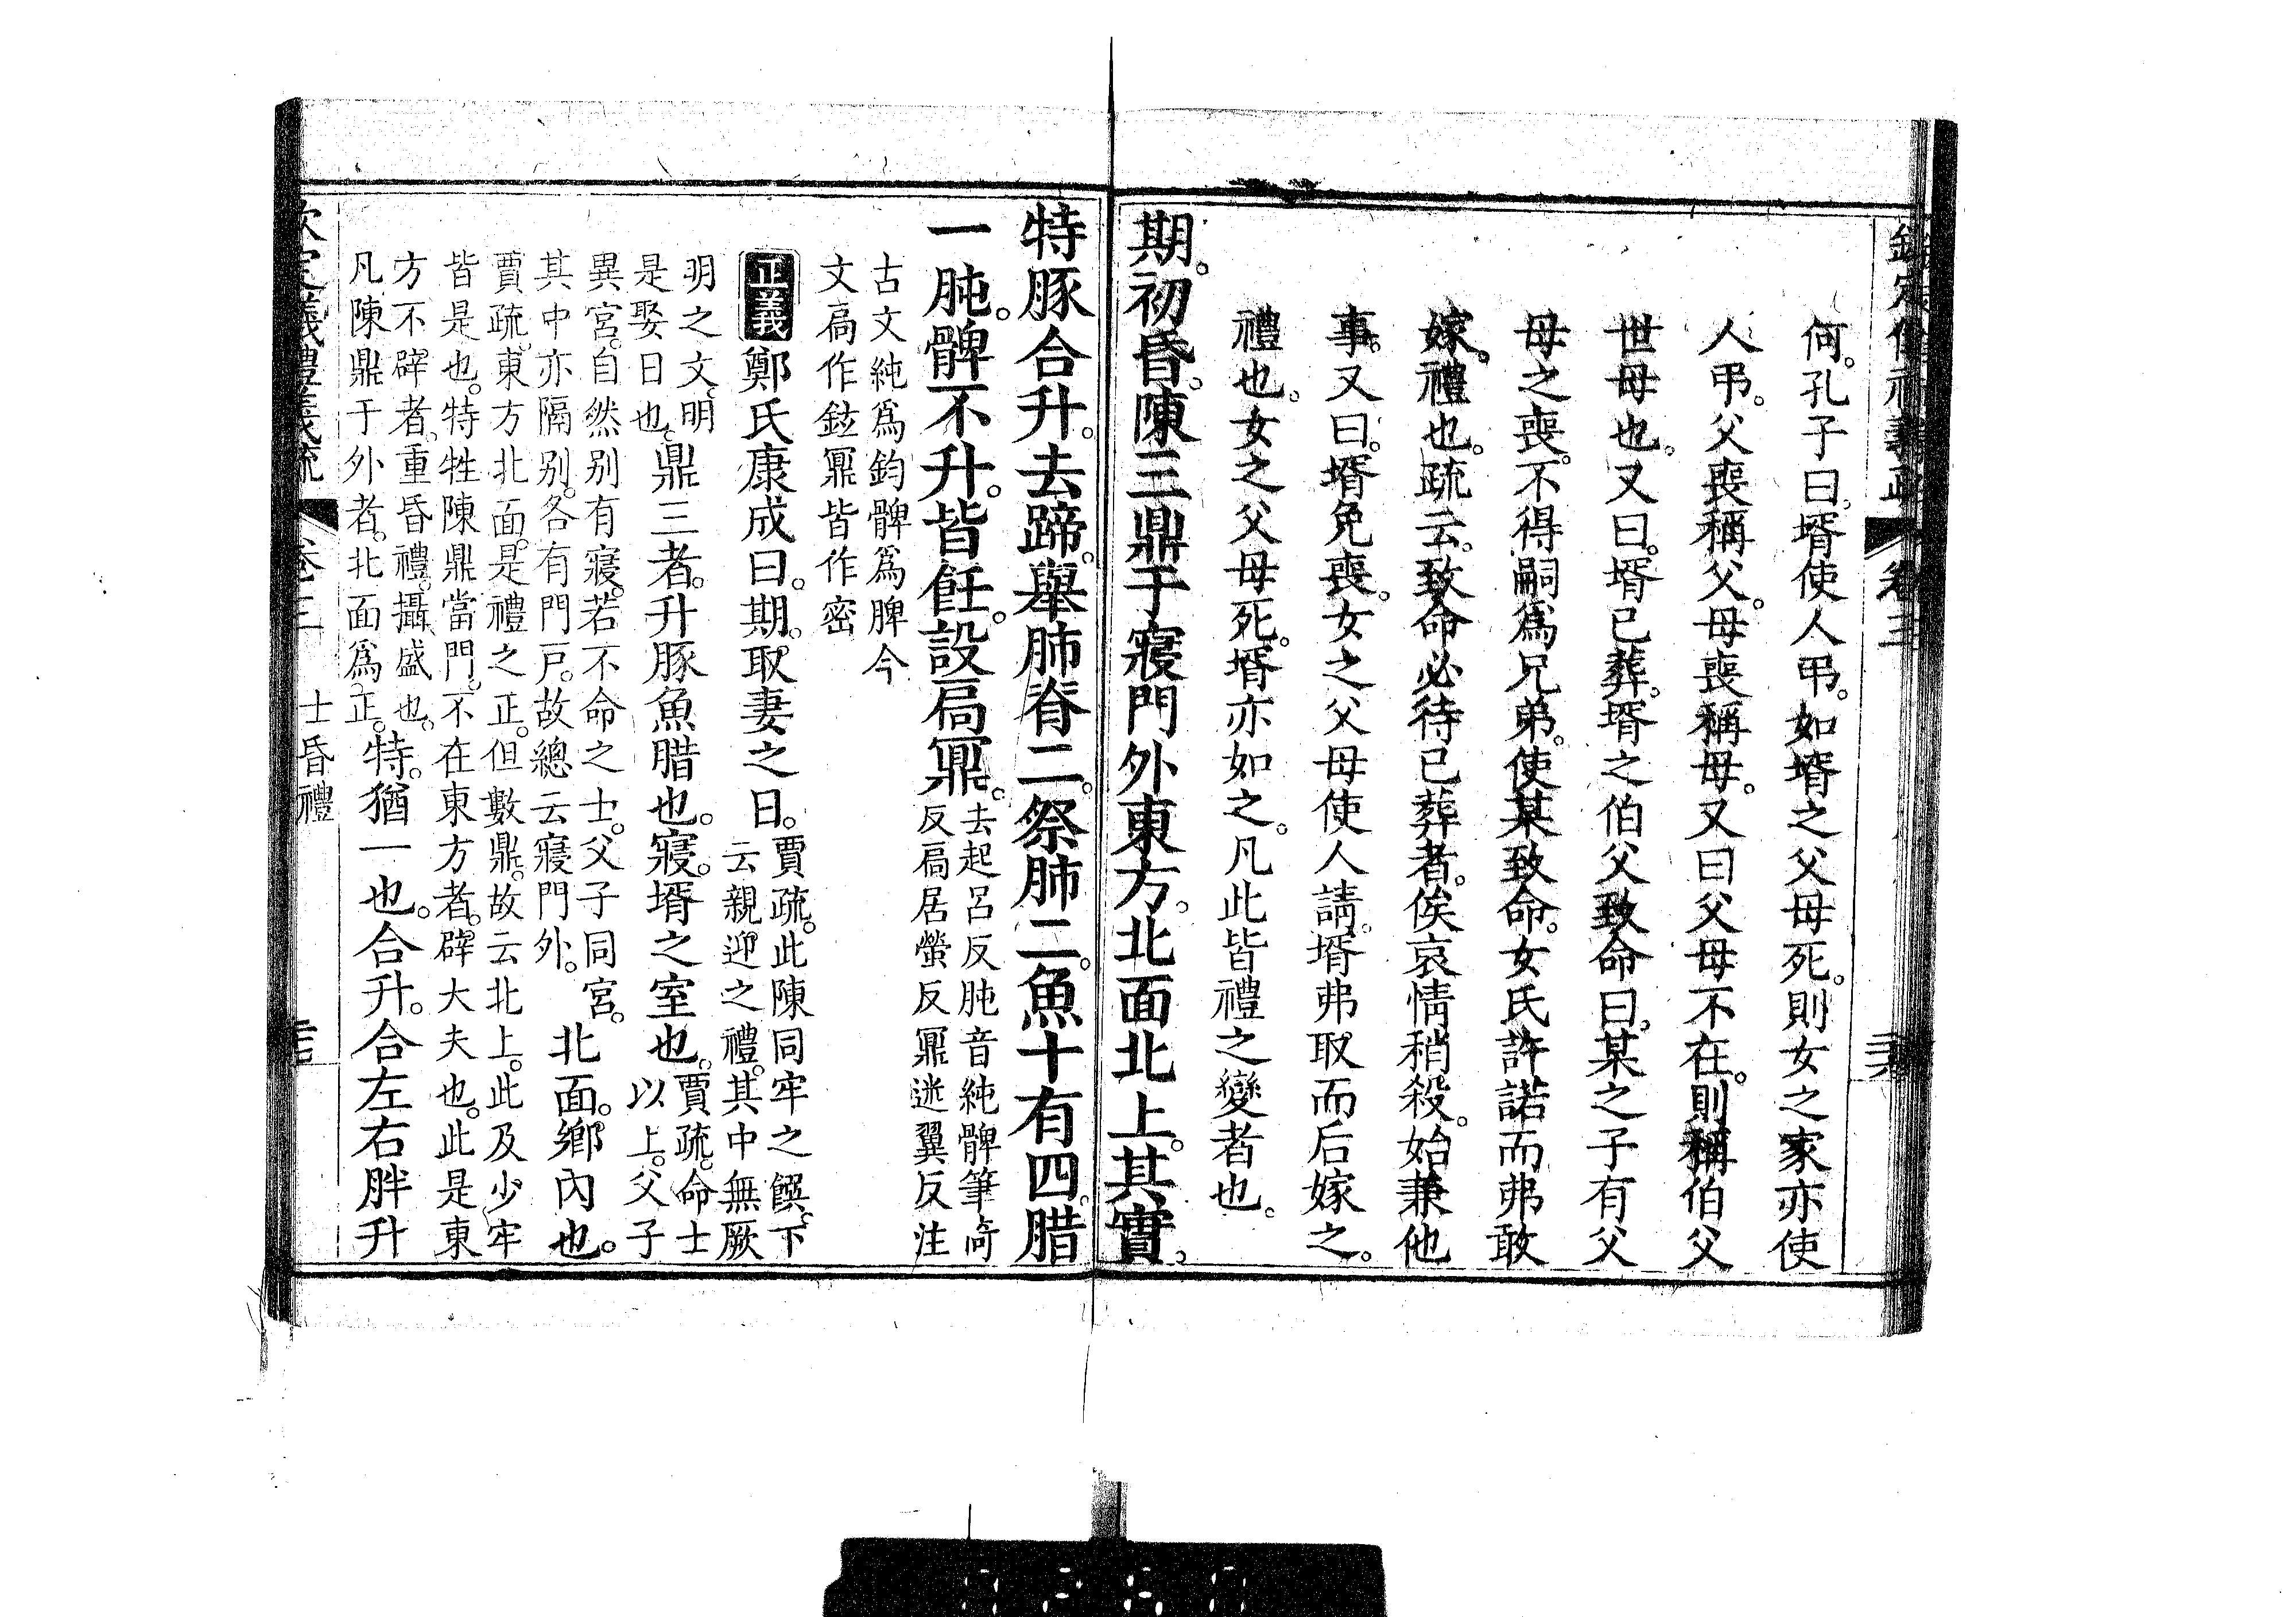 欽定儀禮義疏 卷三
何。孔子曰。壻使人弔。如壻之父母死。則女之家亦使
人弔。父喪稱父。母喪稱母。又曰父母不在。則稱伯父
世母也。又曰。壻已葬。壻之伯父致命曰。某之子有父
母之喪。不得嗣爲兄弟。使某致命。女氏許諾而弗敢
嫁。禮也。疏云。致命必待已葬者。俟哀情稍殺。始兼他
事。又曰。壻免喪。女之父母使人請。壻弗取而后嫁之。
禮也。女之父母死。壻亦如之。凡此皆禮之變者也。
期。初昏。陳三鼎于寢門外東方。北面北上。其實。
特豚合升。去蹄。舉肺脊二。祭肺二。魚十有四。腊
一肫。髀不升。皆飪。設扃鼏。
去起呂反肫音純髀筆奇
反扃居螢反鼏迷翼反注
古文純爲鈞髀爲脾今
文扃作鉉鼏皆作密
正義 鄭氏康成曰。期。取妻之日。
賈疏。此陳同牢之饌。下
云親迎之禮。其中無厥
明之文。明
是娶日也。
鼎三者。升豚魚腊也。寢。壻之室也。
賈疏。命士
以上。父子
異宮。自然别有寢。若不命之士。父子同宮。
其中亦隔别。各有門戸。故總云寢門外。
北面。鄉內也。
賈疏。東方北面。是禮之正。但數鼎。故云北上。此及少牢
皆是也。特牲陳鼎當門。不在東方者。辟大夫也。此是東
方不辟者。重昏禮。攝盛也。
凡陳鼎于外者。北面爲正。
特。猶一也。合升。合左右胖升
儀禮義疏 卷三 士昏禮